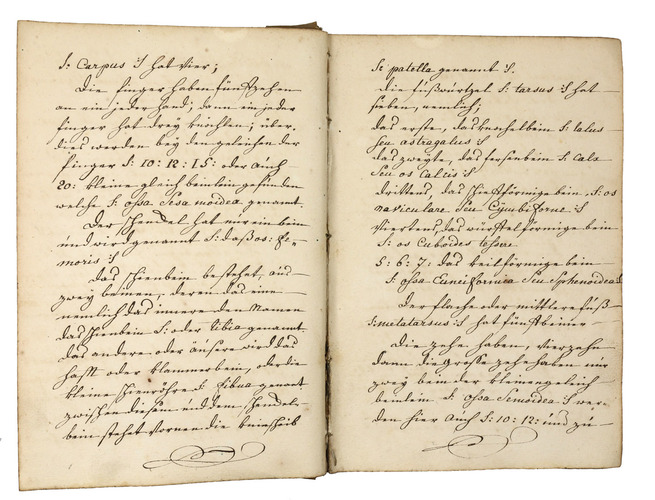 S: Carpus :S hat vier;
Die finger haben fünfzehen
an ein jeder hand; dann ein jeder
finger hat dreÿ knochen; über-
dies werden beÿ den geleichen der
finger S: 10: 12: 15: oder auch
20: kleine gleich beinlein gefunden
welche S: ossa Sesamoidea genannt
Der schenkel hat nur ein bein
und wird genannt S: das os: fe-
moris :S
Das schienbein bestehet, aus
zweÿ beinen, deren das eine
nemlich das innere den Namen
das schienbein S: oder tibia genannt
das andere oder äusere wird das
oder klammerbein, oder die
kleine schienröhre S: fibula genannt
zwischen diesen und dem schenkel-
bein stehet vornen die kniescheib
S: patella genannt :S.
Die fuswürtzel S: tarsus :S hat
sieben, nemlich;
das erste, das knschelbein S: talus
seu astragalus :S
das zweÿte, das fersenbein S: calx
seu os calcis :S
drittens, das schiefförmige bein, S: os
naviculare seu Cymbiforme :S
viertens, das würffelförmige bein
S: os Cuboides tessere
5: 6: 7: das keilförmige bein
S: ossa Cuneiformia Seu Sphenoidea :S
Der flache oder mittlere fuß
S: metatarsus :S hat fünf beiner
Die zehe haben, vierzehn
dann die grosse zehe haben nur
zweÿ bein der kleinen gleich
beinlein S: ossa Semoidea :S wer-
den hier auch S: 10: 12: und zu